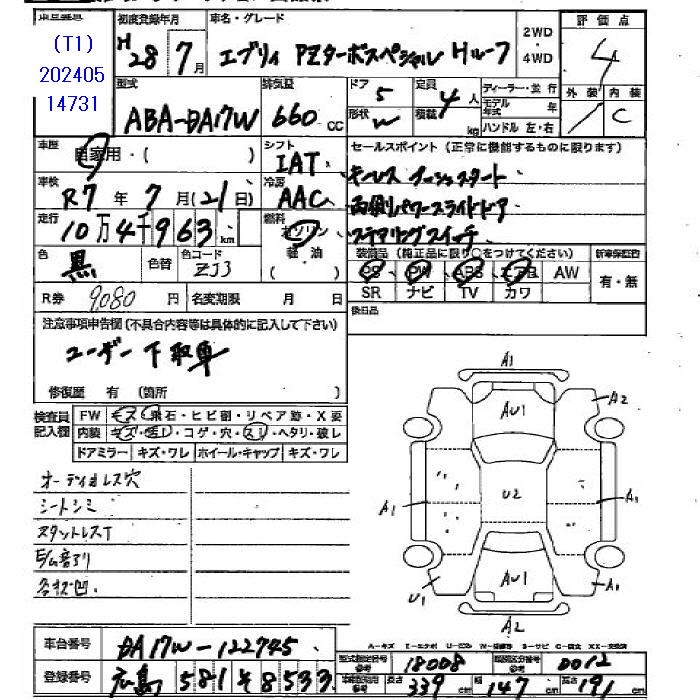 (T1)
202405
14731
初度登録年月
H28年7月
車名・グレード
エブリィ PZターボスペシャル Hルーフ
2WD
・
4WD
評価点
4
外装 内装
C
型式
ABA-DA17W
排気量
660 cc
ドア
5
形状
W
定員
4人
積載
kg
ディーラー・並行
モデル年式 年
ハンドル 左・右
車歴
自家用・( )
シフト
IAT
セールスポイント (正常に機能するものに限ります)
キーレス プッシュスタート
両側パワースライドドア
ステアリングスイッチ
車検
R7年7月(21日)
冷房
AAC
走行
10万4千963km
燃料
ガソリン
軽油
色
黒
色替
色コード
ZJ3
装備品 (純正品に限り○をつけてください)
PS PW ABS エアB AW
SR ナビ TV カワ
新車保証書
有・無
R券 9080円
名変期限 月 日
後日品
注意事項申告欄 (不具合内容等は具体的に記入して下さい)
ユーザー下取車
修復歴 有 (箇所 )
検査員
記入欄
FW キズ・飛石・ヒビ割・リペア跡・X要
内装 キズ・汚レ・コゲ・穴・スリ・ヘタリ・破レ
ドアミラー キズ・ワレ ホイール・キャップ キズ・ワレ
オーディオレス穴
シートシミ
スタットレスT
各キズ凹
A1
A2
AU1
A1
U2
A1
AU1
U1
A1
A2
車台番号
DA17W-122745
登録番号
広島 581 そ 8533
型式指定番号
参考
18008
類別区分番号
参考
0012
長さ 339 cm 幅 147 cm 高さ 191 cm